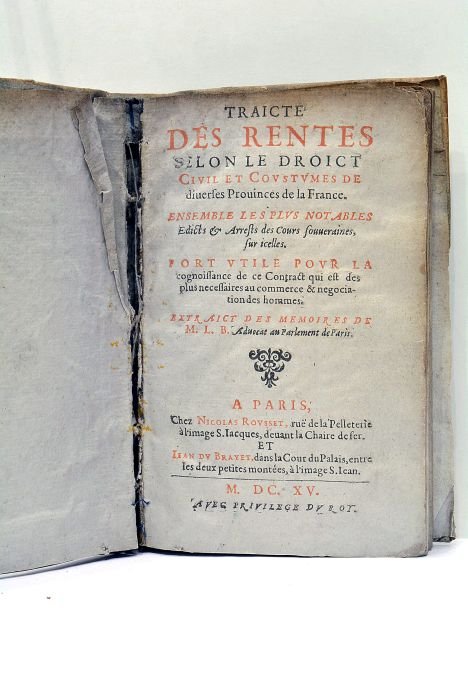 TRAICTÉ
DES RENTES
SELON LE DROICT
CIVIL ET COVSTVMES DE
diuerses Prouinces de la France.
ENSEMBLE LES PLVS NOTABLES
Edicts & Arrests des Cours souueraines,
sur icelles.
FORT VTILE POVR LA
cognoissance de ce Contract qui est des
plus necessaires au commerce & negocia-
tion des hommes.
EXTRAICT DES MEMOIRES DE
M. L. B. Aduocat au Parlement de Paris.
A PARIS,
Chez NICOLAS ROVSSET, ruë de la Pelleterie
à l'image S. Iacques, deuant la Chaire de fer.
ET
IEAN DV BRAYET, dans la Cour du Palais, entre
les deux petites montées, à l'image S. Iean.
M. DC. XV.
AVEC PRIVILEGE DV ROY.